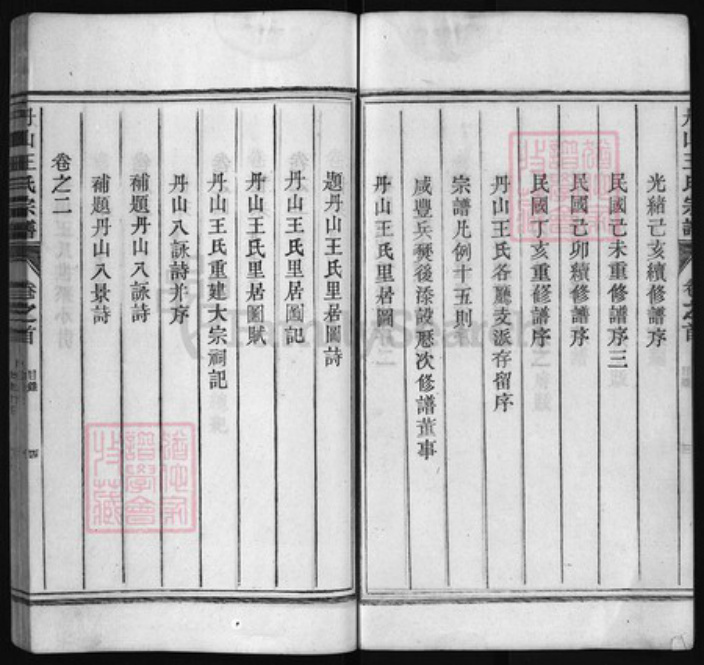 丹山王氏宗譜 卷之首
光緒己亥續修譜序
民國己未重修譜序三
民國己卯續修譜序
民國丁亥重修譜序
丹山王氏各廳支派存留序
宗譜凡例十五則
咸豐兵燹後添設歷次修譜董事
丹山王氏里居圖
題丹山王氏里居圖詩
丹山王氏里居圖記
丹山王氏里居圖賦
丹山王氏重建大宗祠記
丹山八詠詩并序
補題丹山八詠詩
補題丹山八景詩
卷之二
丹山王氏宗譜 卷之首
FamilySearch